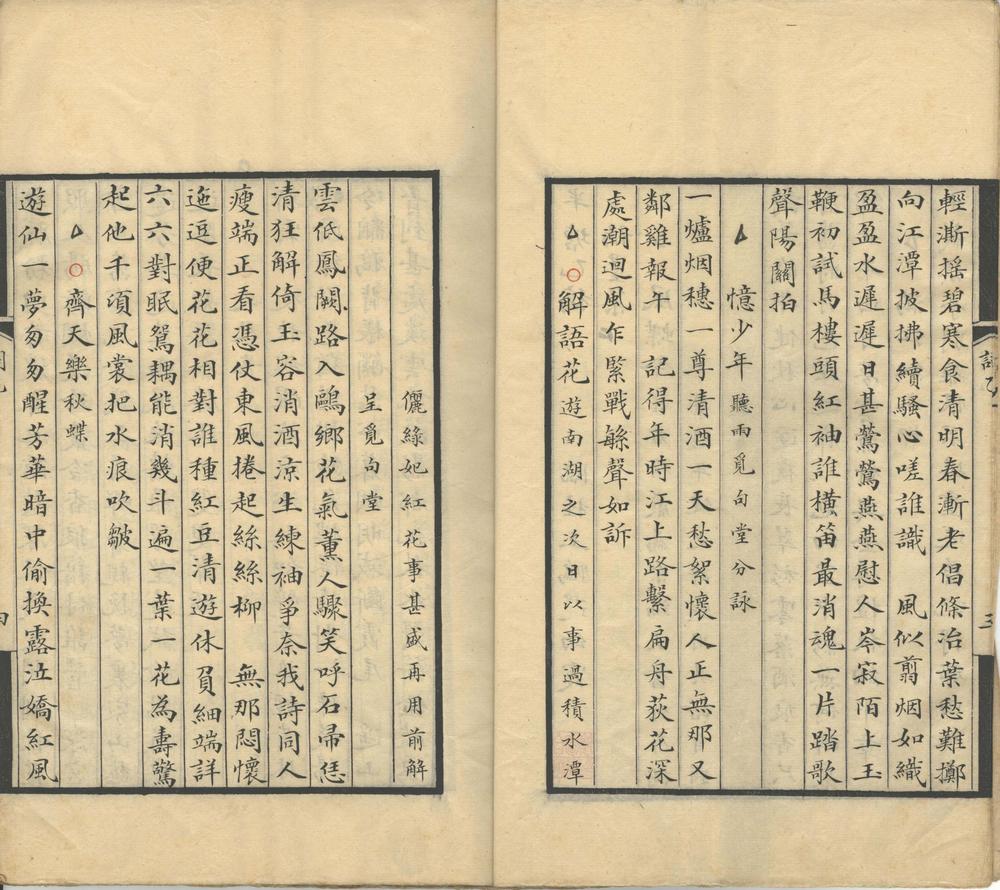 輕澌搖碧寒食清明春漸老倡條冶葉愁難擲
向江潭披拂續騷心嗟誰識　風似翦烟如織
盈盈水遲遲日甚鶯鶯燕燕慰人岑寂陌上玉
鞭初試馬樓頭紅袖誰橫笛最消魂一片踏歌
聲陽關拍
憶少年聽雨覓句堂分詠
一爐烟穗一尊清酒一天愁絮懷人正無那又
鄰雞報午　記得年時江上路繫扁舟荻花深
處潮迴風乍緊戰繇聲如訴
解語花遊南湖之次日以事過積水潭
儷綠妃紅花事甚盛再用前解
呈覓句堂
雲低鳳闕路入鷗鄉花氣薰人驟笑呼石帚恁
清狂解倚玉容消酒涼生練袖爭奈我詩同人
瘦端正看憑仗東風捲起絲絲柳　無那悶懷
迤逗便花花相對誰種紅豆清遊休負細端詳
六六對眠鴛耦能消幾斗遍一葉一花為壽驚
起他千頃風裳把水痕吹皺
齊天樂秋蝶
遊仙一夢匆匆醒芳華暗中偷換露泣嬌紅風